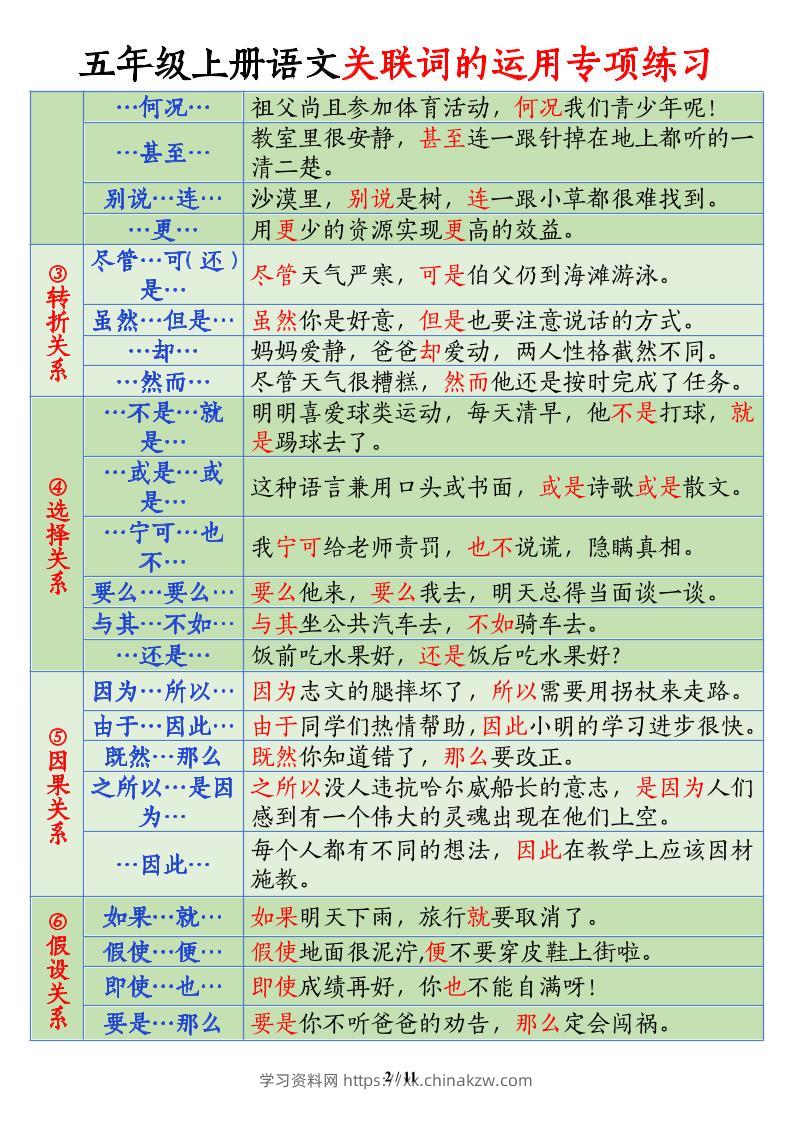 五年级上册语文关联词的运用专项练习
…何况… 祖父尚且参加体育活动，何况我们青少年呢！
…甚至… 教室里很安静，甚至连一跟针掉在地上都听的一
清二楚。
别说…连… 沙漠里，别说是树，连一跟小草都很难找到。
…更… 用更少的资源实现更高的效益。
③转折关系
尽管…可（还）
是…
尽管天气严寒，可是伯父仍到海滩游泳。
虽然…但是… 虽然你是好意，但是也要注意说话的方式。
…却… 妈妈爱静，爸爸却爱动，两人性格截然不同。
…然而… 尽管天气很糟糕，然而他还是按时完成了任务。
④选择关系
…不是…就
是…
明明喜爱球类运动，每天清早，他不是打球，就
是踢球去了。
…或是…或
是…
这种语言兼用口头或书面，或是诗歌或是散文。
…宁可…也
不…
我宁可给老师责罚，也不说谎，隐瞒真相。
要么…要么… 要么他来，要么我去，明天总得当面谈一谈。
与其…不如… 与其坐公共汽车去，不如骑车去。
…还是… 饭前吃水果好，还是饭后吃水果好？
⑤因果关系
因为…所以… 因为志文的腿摔坏了，所以需要用拐杖来走路。
由于…因此… 由于同学们热情帮助，因此小明的学习进步很快。
既然…那么 既然你知道错了，那么要改正。
之所以…是因
为…
之所以没人违抗哈尔威船长的意志，是因为人们
感到有一个伟大的灵魂出现在他们上空。
…因此… 每个人都有不同的想法，因此在教学上应该因材
施教。
⑥假设关系
如果…就… 如果明天下雨，旅行就要取消了。
假使…便… 假使地面很泥泞,便不要穿皮鞋上街啦。
即使…也… 即使成绩再好，你也不能自满呀！
要是…那么 要是你不听爸爸的劝告，那么定会闯祸。
2 / 11
学习资料网 https://xk.chinakzw.com